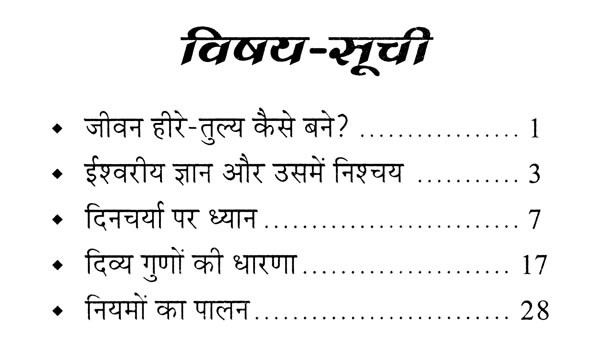 विषय-सूची
◆ जीवन हीरे-तुल्य कैसे बने? .................. 1
◆ ईश्वरीय ज्ञान और उसमें निश्चय ............ 3
◆ दिनचर्या पर ध्यान............................. 7
◆ दिव्य गुणों की धारणा........................ 17
◆ नियमों का पालन.............................. 28